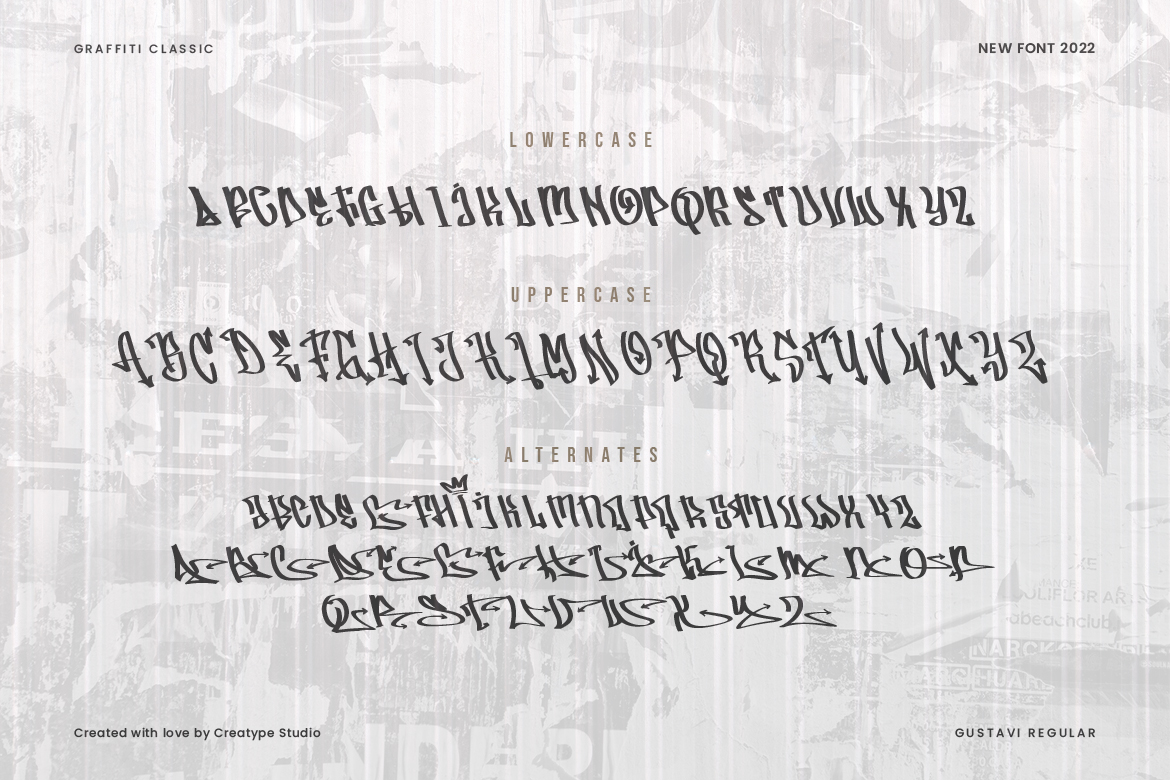 GRAFFITI CLASSIC
NEW FONT 2022
LOWERCASE
ABCDEFGHIJKLMNOPQRSTUVWXYZ
UPPERCASE
ABCDEFGHIJKLMNOPQRSTUVWXYZ
ALTERNATES
Created with love by Creatype Studio
GUSTAVI REGULAR